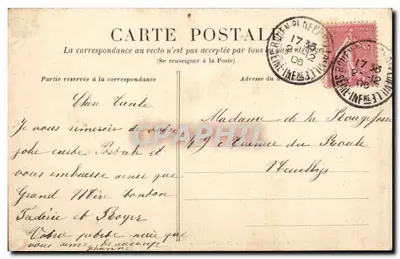 CARTE POSTALE
La correspondance au recto n'est pas acceptée par tous
(Se renseigner à la Poste)
Partie réservée à la correspondance
Adresse du
Chère Tante
Je vous remercie de votre
jolie carte Postale et
vous embrasse ainsi que
Grand Mère tonton
Frédéric et Roger
Votre petite nièce qui
vous aime beaucoup
Madame de la Rougefosse
49 Avenue du Roule
Neuilly
17
12
06
SEINE INFRE
17
12
06
SEINE INFRE